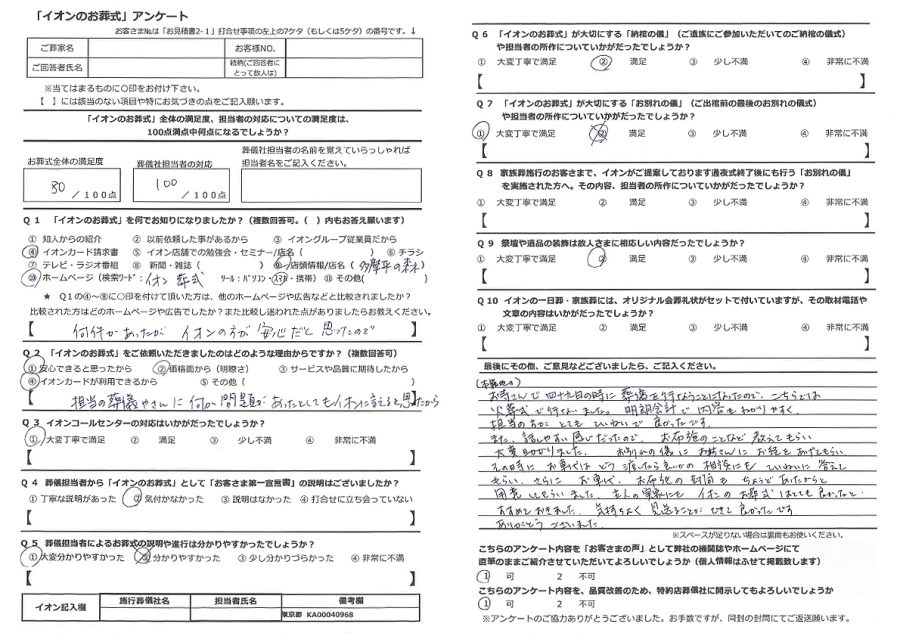 「イオンのお葬式」アンケート
お客さま№は「お見積書2-1」打合せ事項の左上の7ケタ（もしくは5ケタ）の番号です。↓
ご葬家名
お客様NO.
ご回答者氏名
続柄(ご回答者にとって故人は)
※当てはまるものに○印をお付け下さい。
【　】には該当のない項目や特にお気づきの点をご記入願います。
「イオンのお葬式」全体の満足度、担当者の対応についての満足度は、
100点満点中何点になるでしょうか？
お葬式全体の満足度
葬儀社担当者の対応
葬儀社担当者の名前を覚えていらっしゃれば
担当者名をご記入ください。
80 ／100点
100 ／100点
Q１　「イオンのお葬式」を何でお知りになりましたか？（複数回答可。（　）内もお答え願います）
① 知人からの紹介　② 以前依頼した事があるから　③ イオングループ従業員だから
④イオンカード請求書　⑤ イオン店舗での勉強会・セミナー/店名（　）⑥ チラシ
⑦ テレビ・ラジオ番組　⑧ 新聞・雑誌（　）⑨店頭情報/店名（ 多摩平の森 ）
⑩ホームページ（検索ワード：イオン 葬式　ツール：パソコン・スマホ・携帯）⑪ その他(　)
★　Q1の④～⑧に○印を付けて頂いた方は、他のホームページや広告などと比較されましたか？
比較された方はどのホームページや広告でしたか？また比較し迷われた点がありましたらお教えください。
【 何件かあったが イオンの方が 安心だと 思ったので 】
Q２　「イオンのお葬式」をご依頼いただきましたのはどのような理由からですか？（複数回答可）
①安心できると思ったから　②価格面から（明瞭さ）　③ サービスや品質に期待したから
④イオンカードが利用できるから　⑤ その他（　）
【 担当の葬儀やさんに 何か問題があったとしてもイオンに言えると思ったから 】
Q３　イオンコールセンターの対応はいかがだったでしょうか？
①大変丁寧で満足　②　満足　③　少し不満　④　非常に不満
【　】
Q４　葬儀担当者から「イオンのお葬式」として「お客さま第一宣言書」の説明はございましたか？
① 丁寧な説明があった　②気付かなかった　③ 説明はなかった　④ 打合せに立ち会っていない
【　】
Q５　葬儀担当者によるお葬式の説明や進行は分かりやすかったでしょうか？
①大変分かりやすかった　②分かりやすかった　③ 少し分かりづらかった　④ 非常に不満
【　】
イオン記入欄
施行葬儀社名
担当者氏名
備考欄
東京都 KA00040968
Q６　「イオンのお葬式」が大切にする「納棺の儀」（ご遺族にご参加いただいてのご納棺の儀式）
や担当者の所作についていかがだったでしょうか？
①　大変丁寧で満足　②　満足　③　少し不満　④　非常に不満
【　】
Q７　「イオンのお葬式」が大切にする「お別れの儀」（ご出棺前の最後のお別れの儀式）
や担当者の所作についていかがだったでしょうか？
①　大変丁寧で満足　②　満足　③　少し不満　④　非常に不満
【　】
Q８　家族葬施行のお客さまで、イオンがご提案しております通夜式終了後にも行う「お別れの儀」
を実施された方へ。その内容、担当者の所作についていかがだったでしょうか？
①　大変丁寧で満足　②　満足　③　少し不満　④　非常に不満
【　】
Q９　祭壇や遺品の装飾は故人さまに相応しい内容だったでしょうか？
①　大変丁寧で満足　②　満足　③　少し不満　④　非常に不満
【　】
Q10　イオンの一日葬・家族葬には、オリジナル会葬礼状がセットで付いていますが、その取材電話や
文章の内容はいかがだったでしょうか？
①　大変丁寧で満足　②　満足　③　少し不満　④　非常に不満
【　】
最後にその他、ご意見などございましたら、ご記入ください。
お寺さんで 四十九日の時に 葬儀を行なうことになったので、こちらでは
火葬式で行ないました。明朗会計で 内容もわかりやすく、
担当の方が とても ていねいで 良かったです。
また、話しやすい感じだったので、お布施のことなど 教えてもらい
大変助かりました。お別れの儀に お坊さんに お経をあげてもらい
その時に お車代は どう 渡したら良いかの 相談にも ていねいに 答えて
もらい、さらに お車代、お布施の封筒も ちょうどあったからと
用意してもらいました。主人の実家にも イオンのお葬式はとても良かったと
すすめておきました。気持ちよく 見送ることができて 良かったです
ありがとう ございました。
※スペースが足りない場合は裏面もお使いください。
こちらのアンケート内容を「お客さまの声」として弊社の機関誌やホームページにて
直筆のままご紹介させていただいてよろしいでしょうか（個人情報はふせて掲載致します）
1　可　2　不可
こちらのアンケート内容を、品質改善のため、特約店葬儀社に開示してもよろしいでしょうか
1　可　2　不可
※アンケートのご協力ありがとうございました。お手数ですが、同封の封筒にてご返送願います。